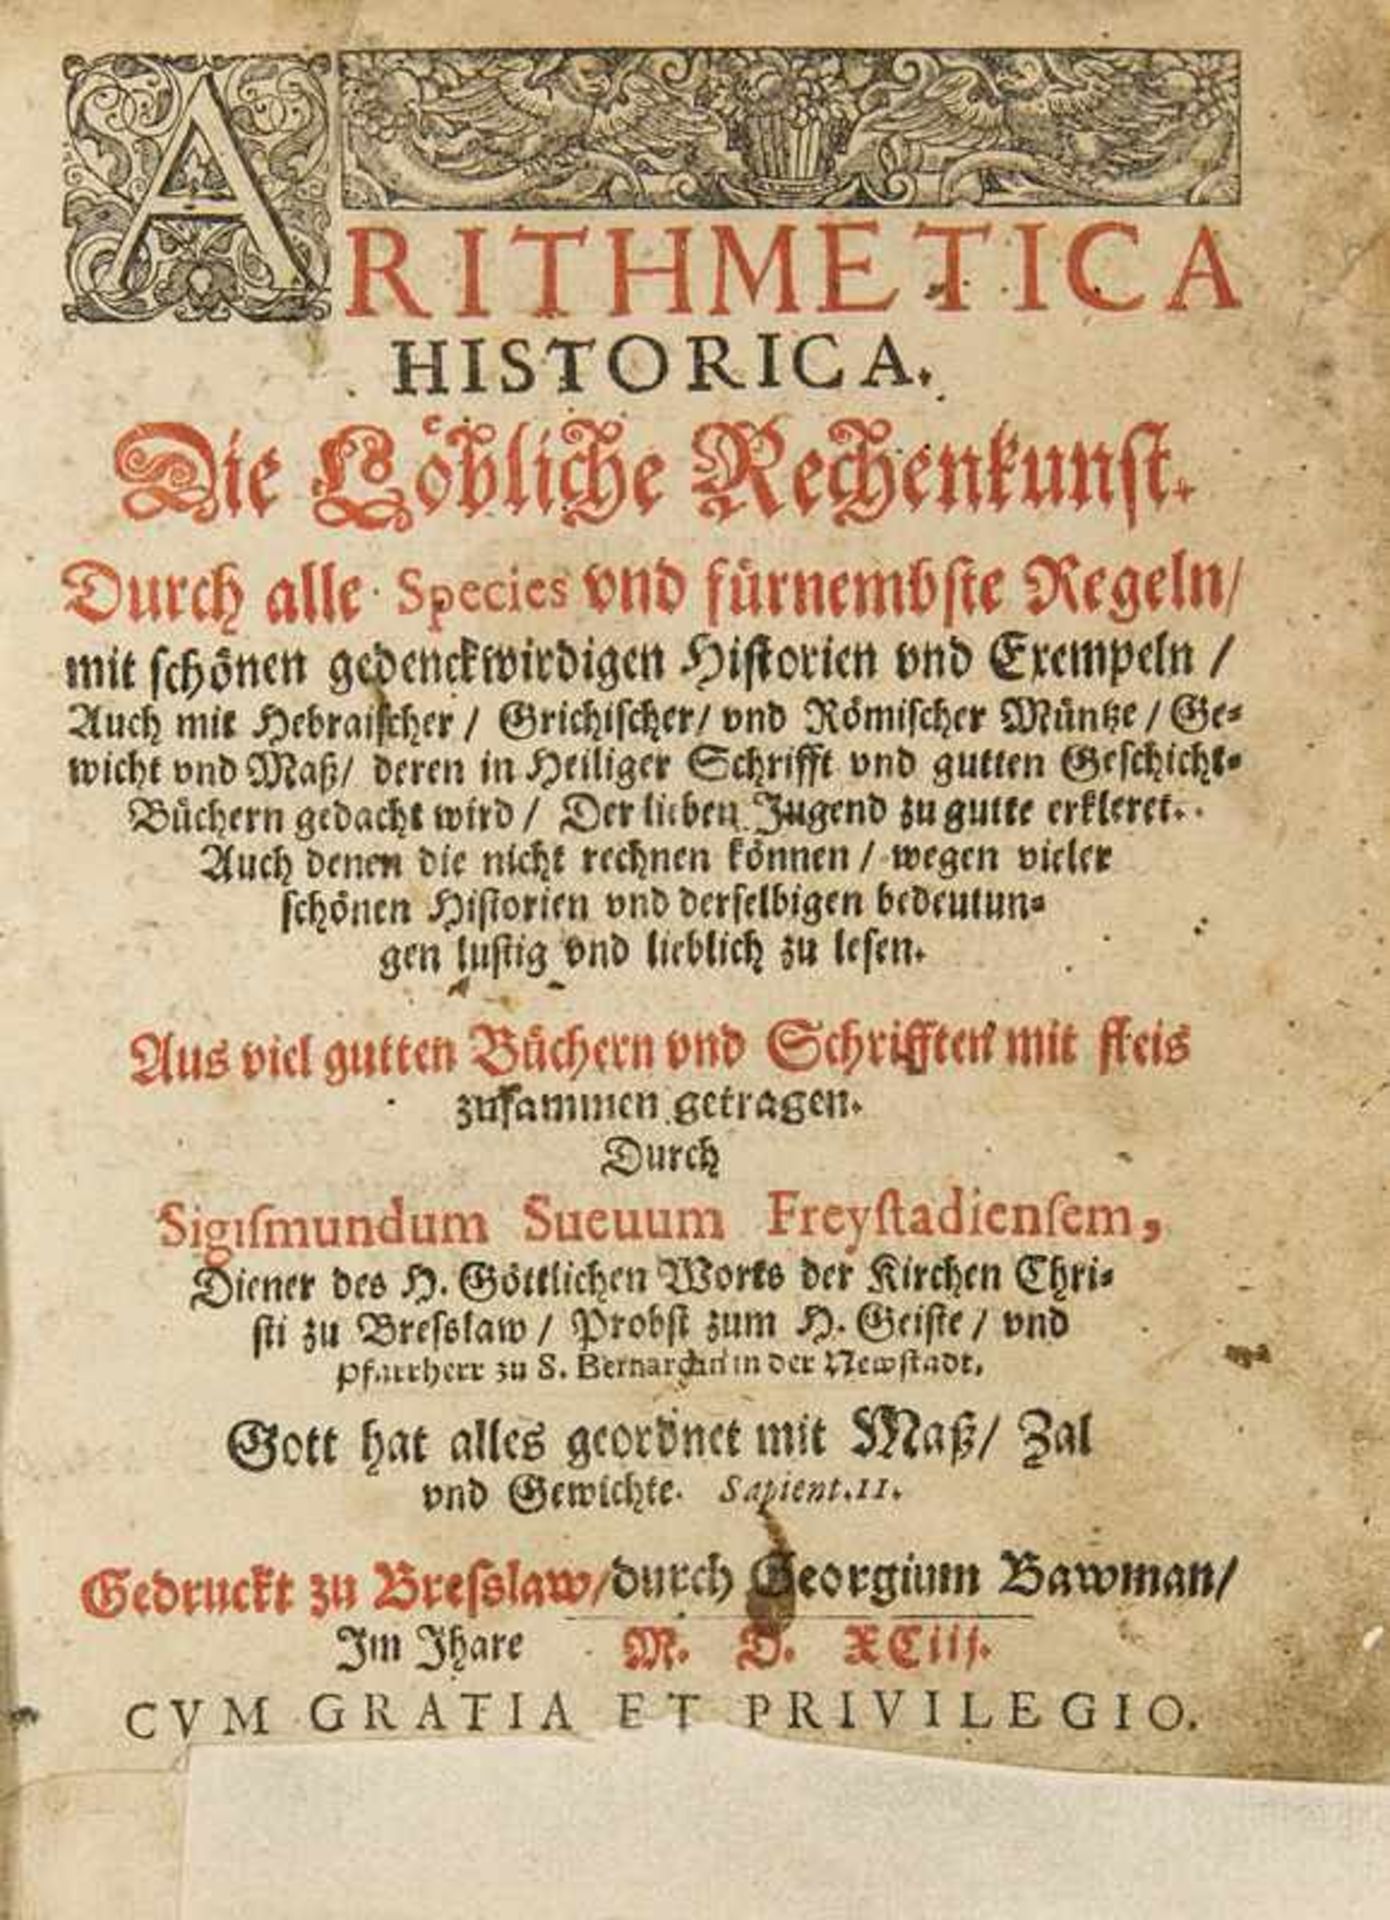 ARITHMETICA
HISTORICA.
Die Löbliche Rechenkunst.
Durch alle Species vnd fürnembste Regeln/
mit schönen gedenckwirdigen Historien vnd Exempeln /
Auch mit Hebraischer / Grichischer / vnd Römischer Müntze / Ge-
wicht vnd Maß / deren in Heiliger Schrifft vnd gutten Geschicht-
Büchern gedacht wird / Der lieben Jugend zu gutte erkleret.
Auch denen die nicht rechnen können / wegen vieler
schönen Historien vnd derselbigen bedeutun-
gen lustig vnd lieblich zu lesen.
Aus viel gutten Büchern vnd Schrifften mit fleis
zusammen getragen.
Durch
Sigismundum Sueuum Freystadiensem,
Diener des H. Göttlichen Worts der Kirchen Chri-
sti zu Bresslaw / Probst zum H. Geiste / vnd
Pfarrherr zu S. Bernardin in der Newstadt.
Gott hat alles geordnet mit Maß / Zal
vnd Gewichte. Sapient. 11.
Gedruckt zu Bresslaw / durch Georgium Bawman /
Im Jhare M. D. XCiij.
CVM GRATIA ET PRIVILEGIO.